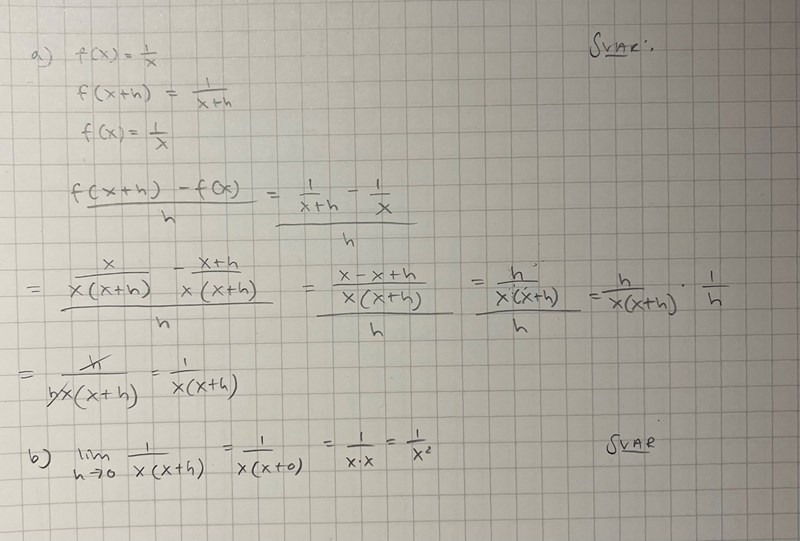 a) f(x) = 1/x SVAR:
f(x+h) = 1/(x+h)
f(x) = 1/x
(f(x+h) - f(x))/h = (1/(x+h) - 1/x)/h
= (x/(x(x+h)) - (x+h)/(x(x+h)))/h = ((x-x+h)/(x(x+h)))/h = (h/(x(x+h)))/h = h/(x(x+h)) · 1/h
= h/(hx(x+h)) = 1/(x(x+h))
b) lim h→0 1/(x(x+h)) = 1/(x(x+0)) = 1/(x·x) = 1/x² SVAR